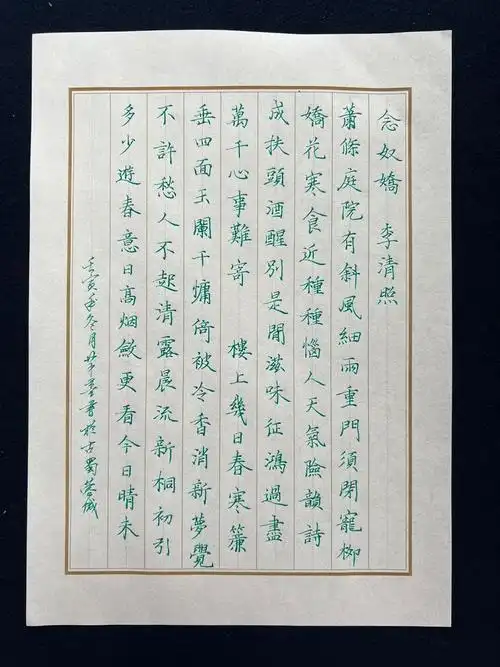 念奴嬌 李清照
蕭條庭院有斜風細雨重門須閉寵柳
嬌花寒食近種種惱人天氣險韻詩
成扶頭酒醒別是閒滋味征鴻過盡
萬千心事難寄 樓上幾日春寒簾
垂四面玉闌干慵倚被冷香消新夢覺
不許愁人不起清露晨流新桐初引
多少遊春意日高烟斂更看今日晴未
壬寅年冬月書於古蜀蓉城